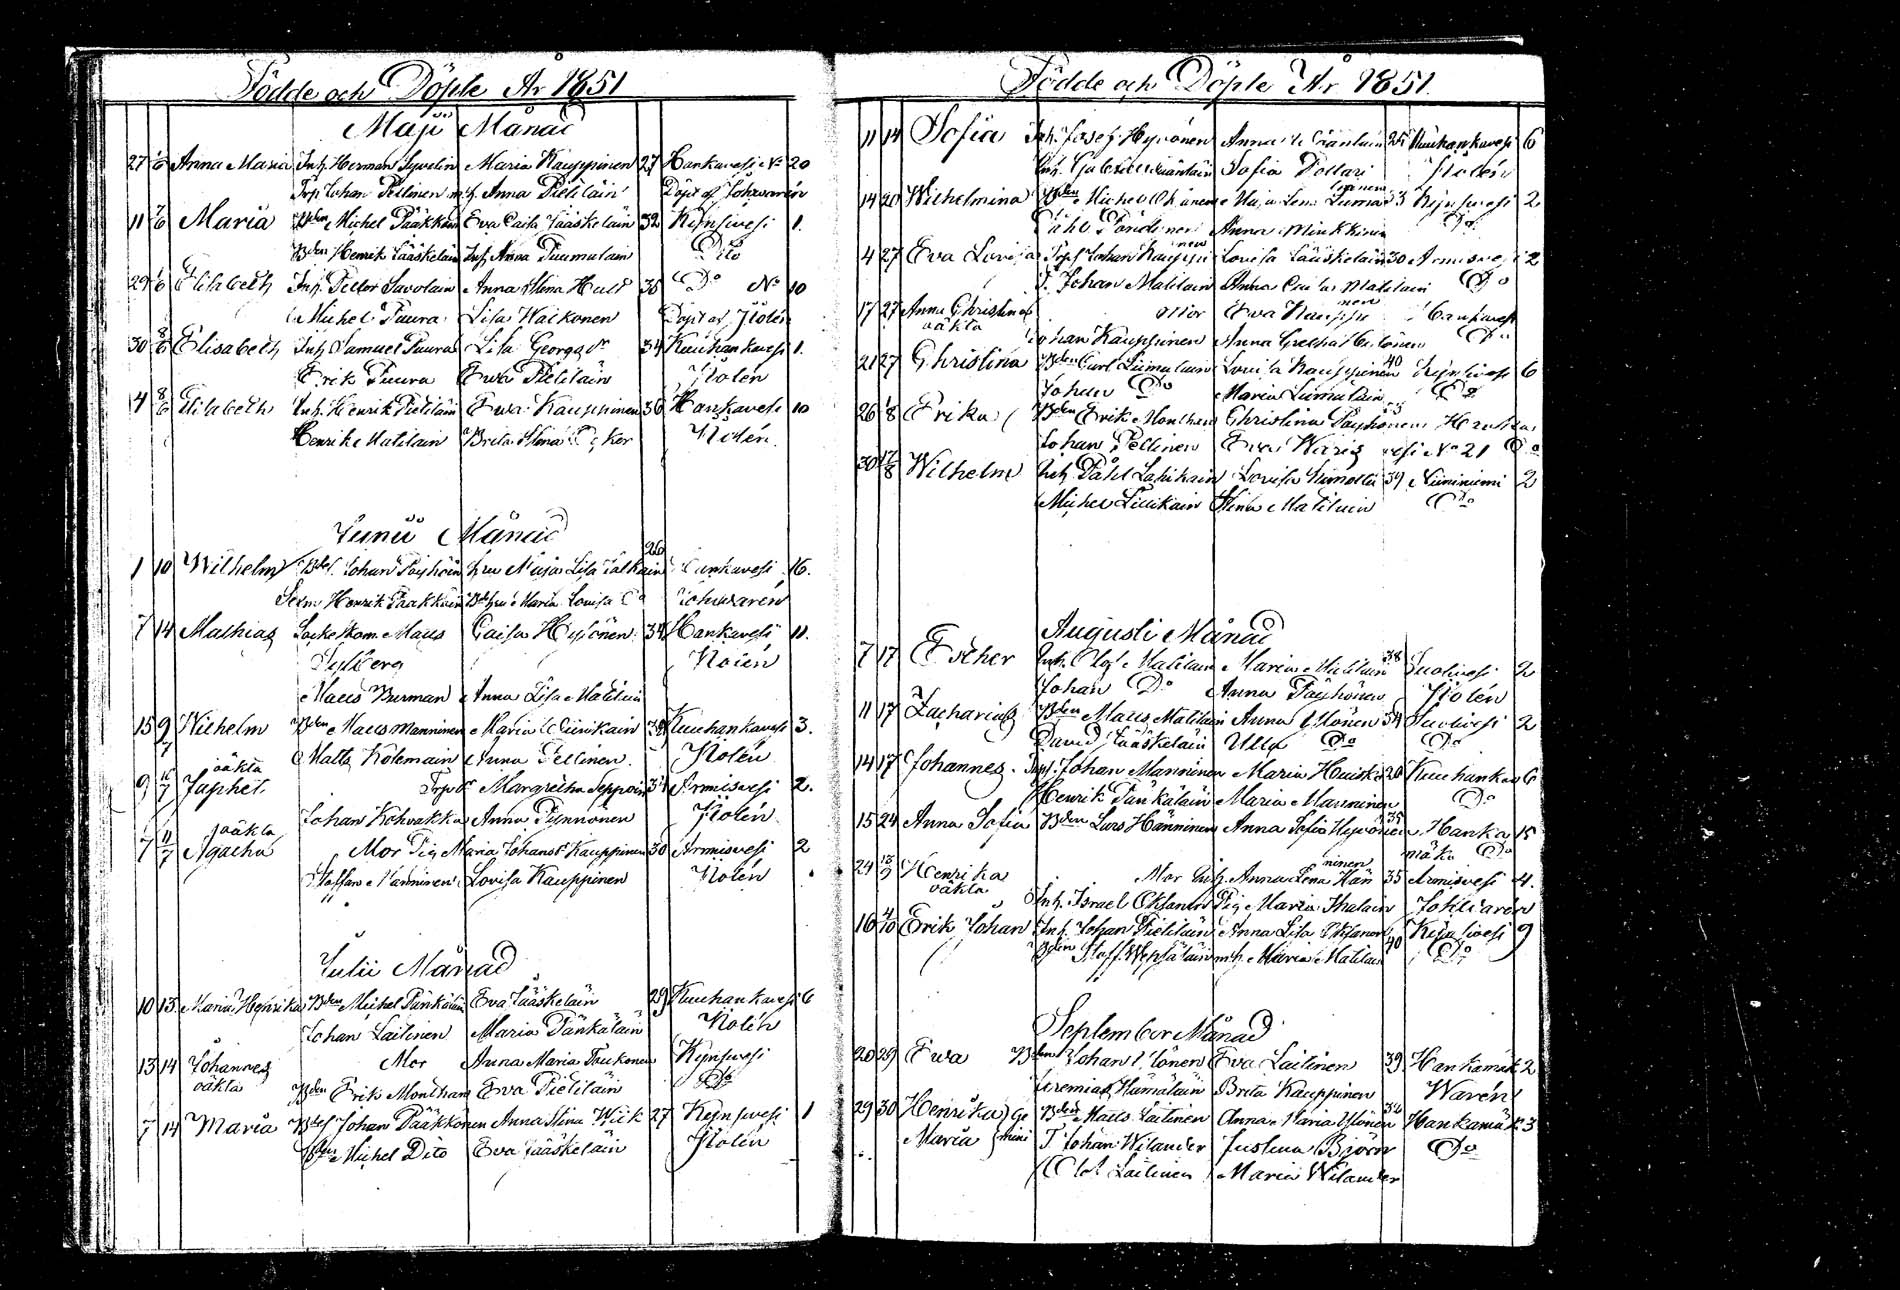 Födde och Döpte År 1851
Maji Månad
27 1/6 Anna Maria Inh. Herman Syvelin Maria Kauppinen 27 Hankavesi No 20
Torp Johan Pellinen m.h. Anna Pietiläin Döpt af Johwarén
11 7/6 Maria Bden Michel Pääkkön Eva Caisa Jääskeläin 32 Kejnsvesi 1.
Bden Henrik Jääskeläin Inh. Anna Tuumalain Dito
29 1/6 Elisabeth Inh. Petter Savolain Anna Stina Huld 35 Do No 10
Michel Puura Lisa Halkonen Döpt af Nolén
30 8/6 Elisabeth Inh. Samuel Puura Lisa Georgsdr 34 Kuuhankavesi 1.
Erik Puura Ewa Pietiläin Nolén
4 8/6 Elisabeth Inh. Henrik Pietiläin Ewa Kauppinen 36 Hankavesi 10
Henrik Matilain Brita Stina Nolén
Junii Månad
1 10 Wilhelm Bdes. Johan Päyhöin hru Maja Lisa Jalkain 26 Hankavesi 16.
Henrik Paakkoin Maria Lovisa Do Johwarén
7 14 Mathias Sockeskom. Mats Caisa Hytönen 34 Hankavesi 11.
Sylberg Nolén
Mats Burman Anna Lisa Matilain
15 9/7 Wilhelm Bden Mats Manninen Maria Kuuhankavesi 3.
Matts Kolemain Anna Pellinen Nolén
oäkta
9 Japhet Torp dr Margretha Seppoin Armisvesi 2.
Johan Kohvakka Anna Tynnönen Nolén
oäkta
7 11/7 Agatha Mor Pig Maria Johansdr Kauppinen 30 Armisvesi 2
Staffan Manninen Lovisa Kauppinen Nolén
Julii Månad
10 13 Maria Henrika Bden Michel Pänkäläin Eva Jääskeläin 29 Kuuhankavesi 6
Johan Laitinen Maria Pänkäläin Nolén
13 14 Johannes Mor Anna Maria Kejnsvesi
oäkta Bden Erik Monthan Eva Pietiläin Do
7 14 Maria Bdes Johan Pääkkönen Anna Stina Wiik 27 Kejnsvesi 1
Bden Michel Dito Eva Jääskeläin Nolén
Födde och Döpte År 1851.
11 14 Sofia Inh. Josef Hyvönen Anna 25 Kuuhankavesi 6
Sofia Pollari Nolén
14 20 Wilhelmina Bden Michel Maja Lena Kejnsvesi 2
Påhl Anna Minkkinen Do
4 27 Eva Lovisa Torp Johan Kauppinen Lovisa Jääskeläin 30 Armisvesi 2
T. Johan Matilain Anna Caisa Matilain Do
17 27 Anna Christina Mor Ewa Kauppinen Hankavesi
oäkta Johan Kauppinen Anna Gretha Do
21 27 Christina Bden Carl Liimatain Lovisa Kauppinen 40 Kejnsvesi 6
Johan Do Maria Liimatain Do
26 1/8 Erika Bden Erik Monthan Christina Päyhönen Hanka
Johan Pellinen Eva Warig vesi No 21 Do
30 17/8 Wilhelm Inh. Påhl Lahikain Lovisa 39 Niininiemi 2
Michel Lillikain Stina Matilain Do
Augusti Månad
7 17 Esther Inh. Olof Matilain Maria Matilain 38 Suolivesi 2
Johan Do Anna Päyhönen Nolén
11 17 Zacharias Bden Mats Matilain Anna Ylönen 34 Suolivesi 2
David Jääskeläin Ulla Do Do
14 17 Johannes Torp. Johan Manninen Maria 26 Kuuhanka 6
Henrik Pänkäläin Maria Manninen Do
15 24 Anna Sofia Bden Lars Hänninen Anna Sofia Hyvönen 35 Hanka 15
mäki Do
24 Henrika Mor Inh. Anna Lena Hänninen 35 Armisvesi 4.
oäkta Inh. Israel Oksanen Pig. Maria Ihalain Johwarén
16 4/10 Erik Johan Inh. Johan Pietiläin Anna Lisa Oksanen 40 Kejnsvesi 9
Bden Staff. Wepsäläin m.h. Maria Matilain Do
September Månad
20 29 Ewa Bden Johan Ylönen Eva Laitinen 39. Hankamäk 2
Jeremias Hämäläin Brita Kauppinen Warén
29 30 Henrika Ge Bden Mats Laitinen Anna Maria Ylönen 36 Hankamäk 3
Maria mini T Johan Wilander Justina Björn Do
Olof Laitinen Maria Wilander